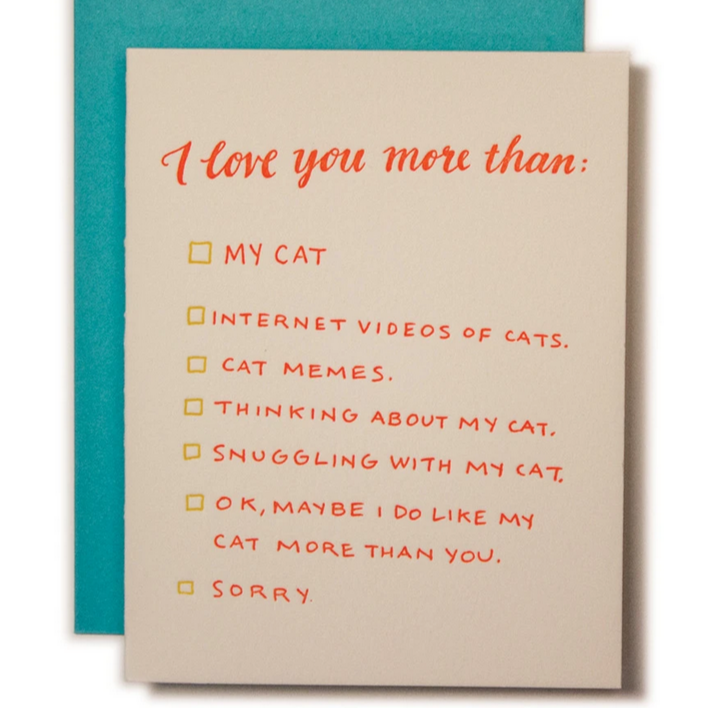 I love you more than:
MY CAT
INTERNET VIDEOS OF CATS.
CAT MEMES.
THINKING ABOUT MY CAT.
SNUGGLING WITH MY CAT.
OK, MAYBE I DO LIKE MY
CAT MORE THAN YOU.
SORRY.